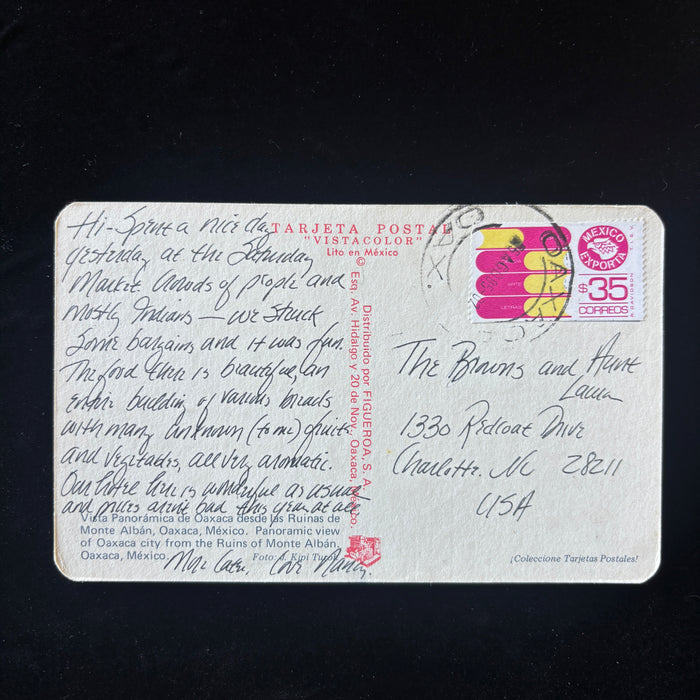 Hi - Spent a nice day
yesterday at the Saturday
Market. Crowds of people and
mostly Indians — we struck
some bargains and it was fun.
The food there is beautiful, an
entire building of various breads
with many unknown (to me) fruits
and vegetables, all very aromatic.
Our hotel here is wonderful as usual
and prices aren't bad this year at all.
More later, Love Nancy.
TARJETA POSTAL
"VISTACOLOR"
Lito en México
© Distribuido por FIGUEROA, S. A.
Esq. Av. Hidalgo y 20 de Nov., Oaxaca, México.
Vista Panorámica de Oaxaca desde las Ruinas de
Monte Albán, Oaxaca, México. Panoramic view
of Oaxaca city from the Ruins of Monte Albán,
Oaxaca, México.
Foto: J. Kipi Turok
OAXACA
OAX.
MEXICO
EXPORTA
$35
CORREOS
R. DAVIDSON T.I.E.V.
ARTE
LETRAS
The Browns and Aunt
Laura
1330 Redcoat Drive
Charlotte. NC 28211
USA
¡Coleccione Tarjetas Postales!